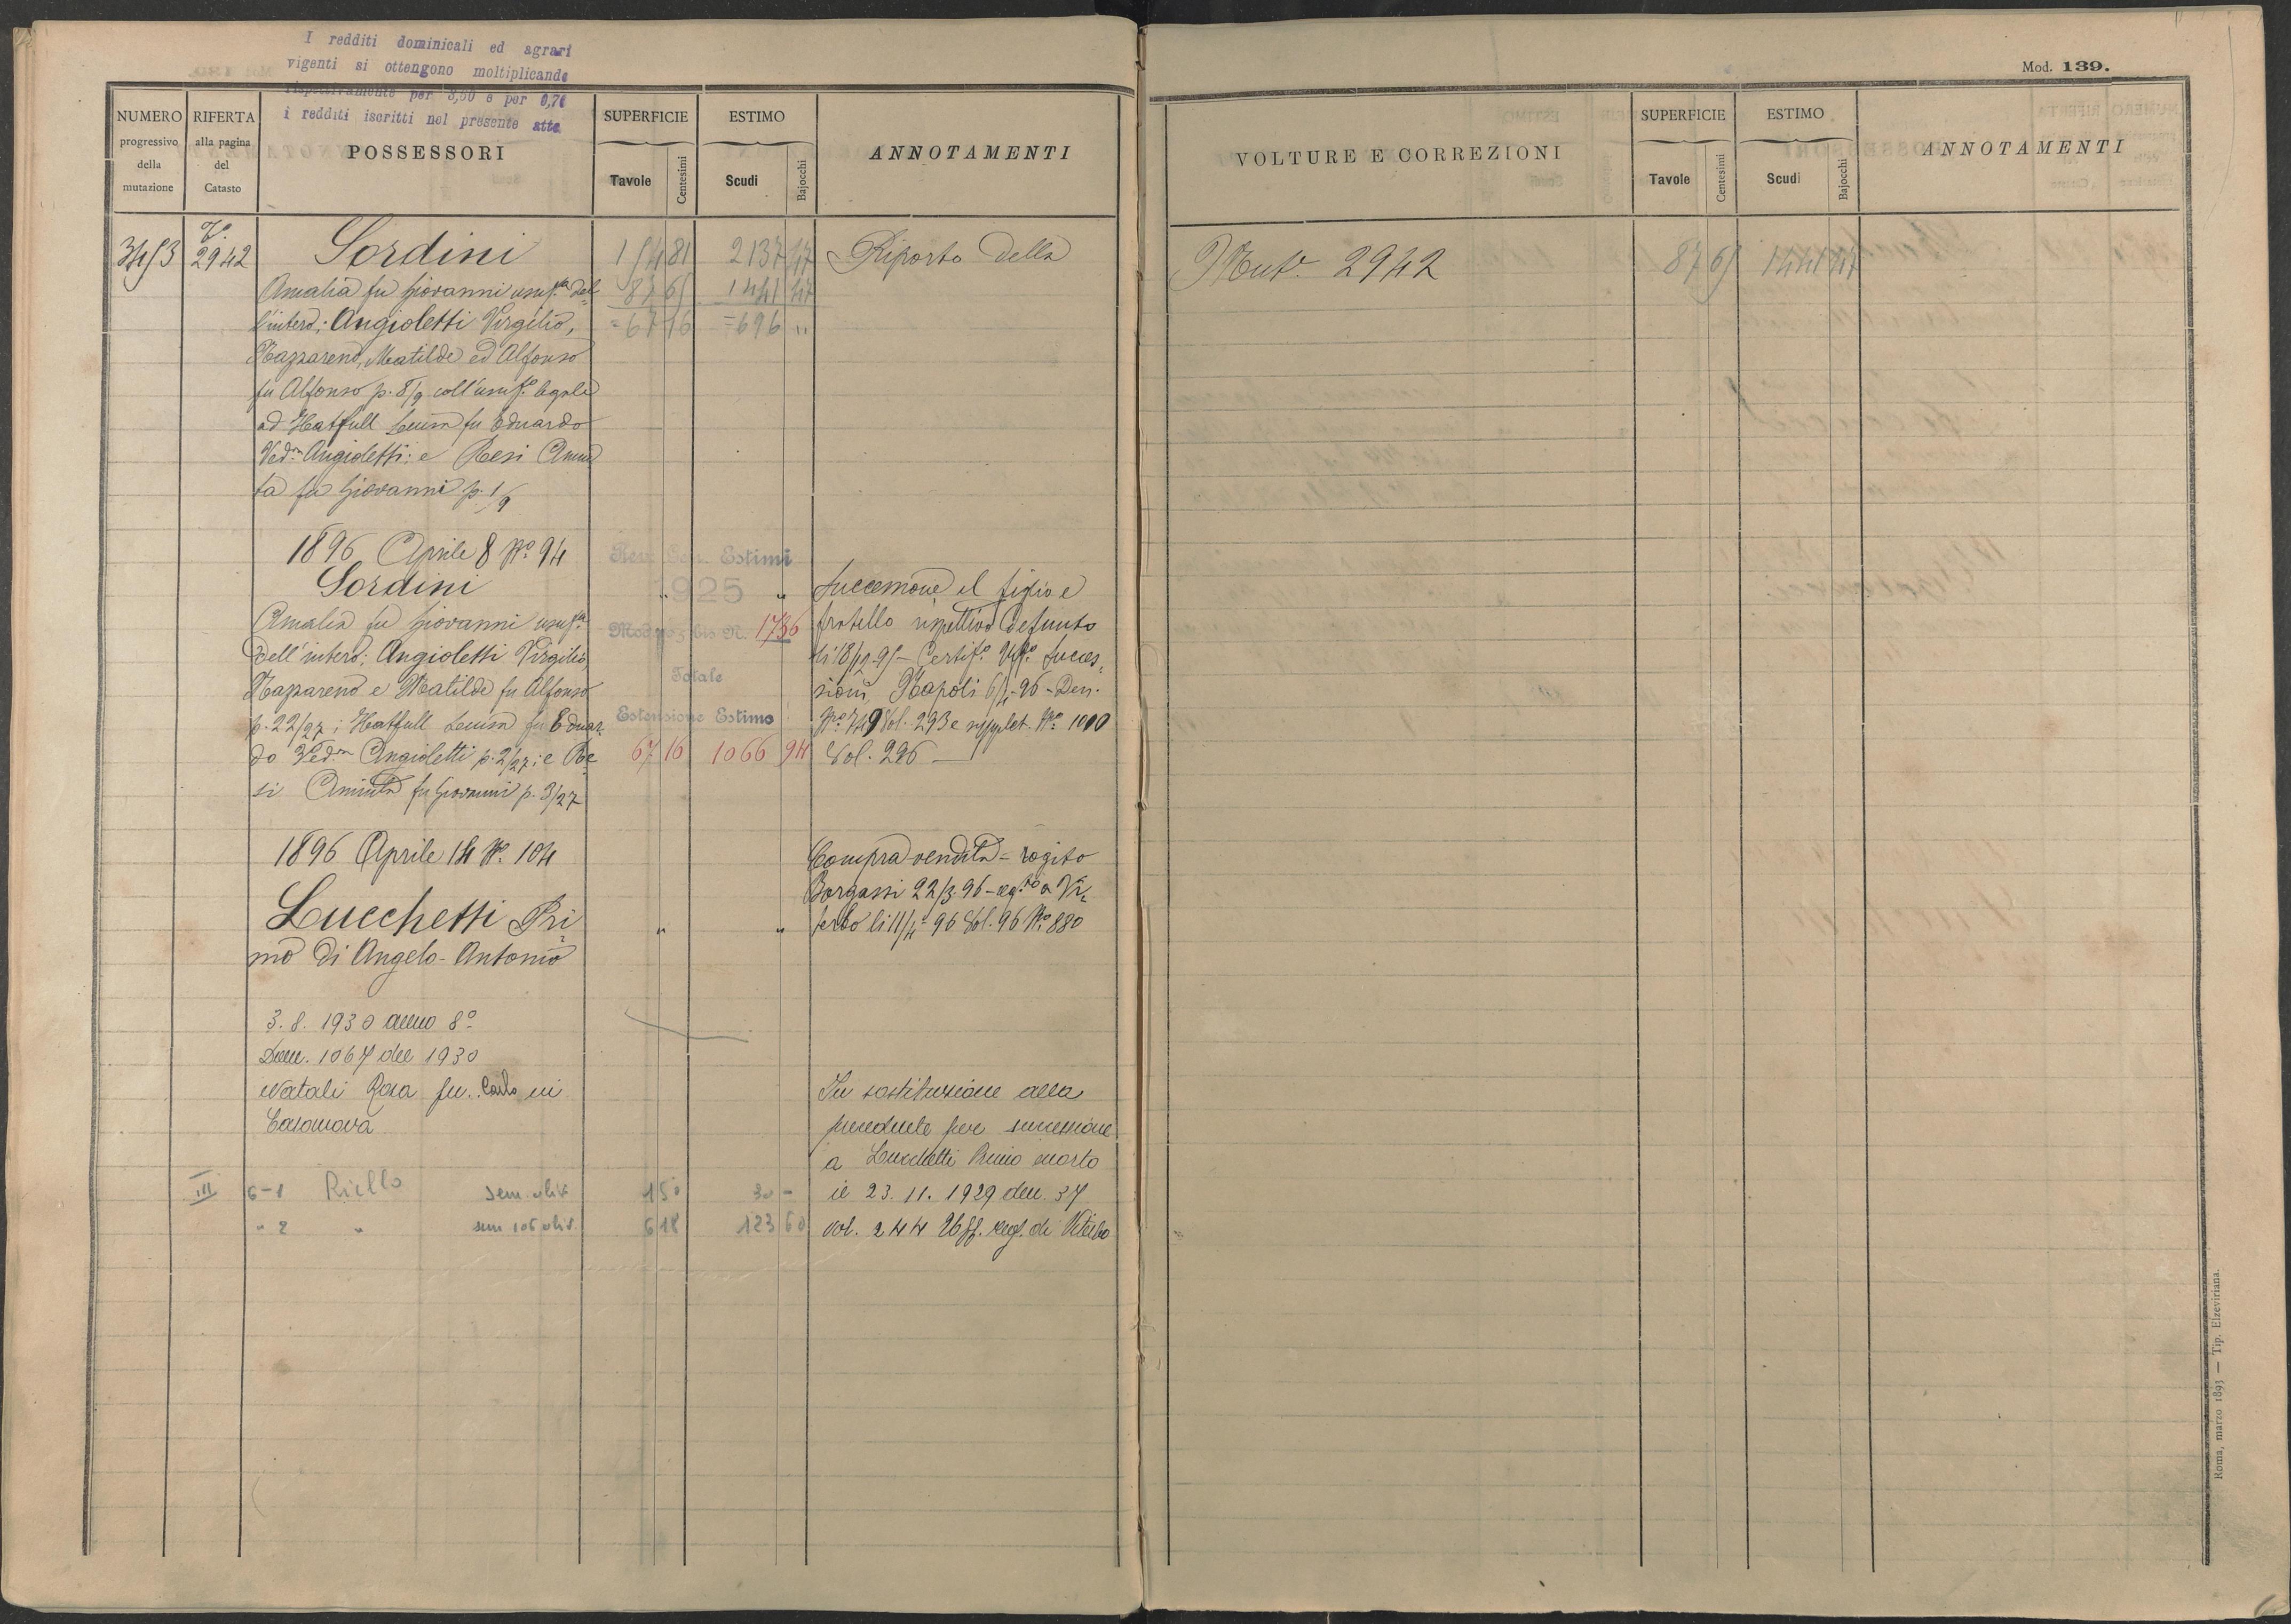 I redditi dominicali ed agrari
vigenti si ottengono moltiplicando
rispettivamente per 3,60 e per 0,76
i redditi iscritti nel presente atto
NUMERO
progressivo
della
mutazione
RIFERTA
alla pagina
del
Catasto
POSSESSORI
SUPERFICIE
Tavole
Centesimi
ESTIMO
Scudi
Bajocchi
ANNOTAMENTI
3453
2942
Sordini
154 81
2137 47
Riporto della
Amalia fu Giovanni usuf.a del
87 65
1441 47
l'intero; Angioletti Virgilio,
= 67 16
= 696 "
Nazzareno, Matilde ed Alfonso
fu Alfonso p. 8/9 coll'usuf.o legale
ad Hatfull Luisa fu Eduardo
Ved.a Angioletti; e Resi Amin
ta fu Giovanni p. 1/9
1896 Aprile 8 No. 94
Sordini
Amalia fu Giovanni usuf.a
dell'intero; Angioletti Virgilio
Nazzareno e Matilde fu Alfonso
p. 22/27; Hatfull Luisa fu Eduar
do Ved.a Angioletti p. 2/27; e Re
si Aminta fu Giovanni p. 3/27
Rev. Gen. Estimi
1925
Mod 103 bis N. 1736
Totale
Estensione Estimo
67 16 1066 94
Successione al figlio e
fratello rispettivo defunto
li 18/12-95 - Certif.o Uff.o Succes
sioni Napoli 6/4-96 - Den.
No. 749 Vol. 293 e supplet. No. 1000
Vol. 296
1896 Aprile 14 No. 104
Lucchetti Pri
mo di Angelo-Antonio
" "
Compra vendita = rogito
Borgassi 22/3-96 - reg.to a Vi
terbo li 11/4-96 Vol. 96 No. 880
3. 8. 1930 anno 8o
Den. 1067 del 1930
Natali Rosa fu Carlo in
Casanova
In sostituzione alla
precedente per successione
a Lucchetti Primo morto
il 23. 11. 1929 den. 37
vol. 244 Uff. reg. di Viterbo
III 6-1 Riello sem. oliv 1 50 30 -
" 2 " 6 18 123 60
Mod. 139.
VOLTURE E CORREZIONI
SUPERFICIE
Tavole
Centesimi
ESTIMO
Scudi
Bajocchi
ANNOTAMENTI
Mut.e 2942
87 65
1441 47
Roma, marzo 1893 — Tip. Elzeviriana.